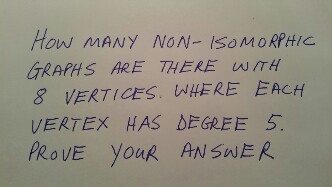 HOW MANY NON-ISOMORPHIC
GRAPHS ARE THERE WITH
8 VERTICES. WHERE EACH
VERTEX HAS DEGREE 5.
PROVE YOUR ANSWER